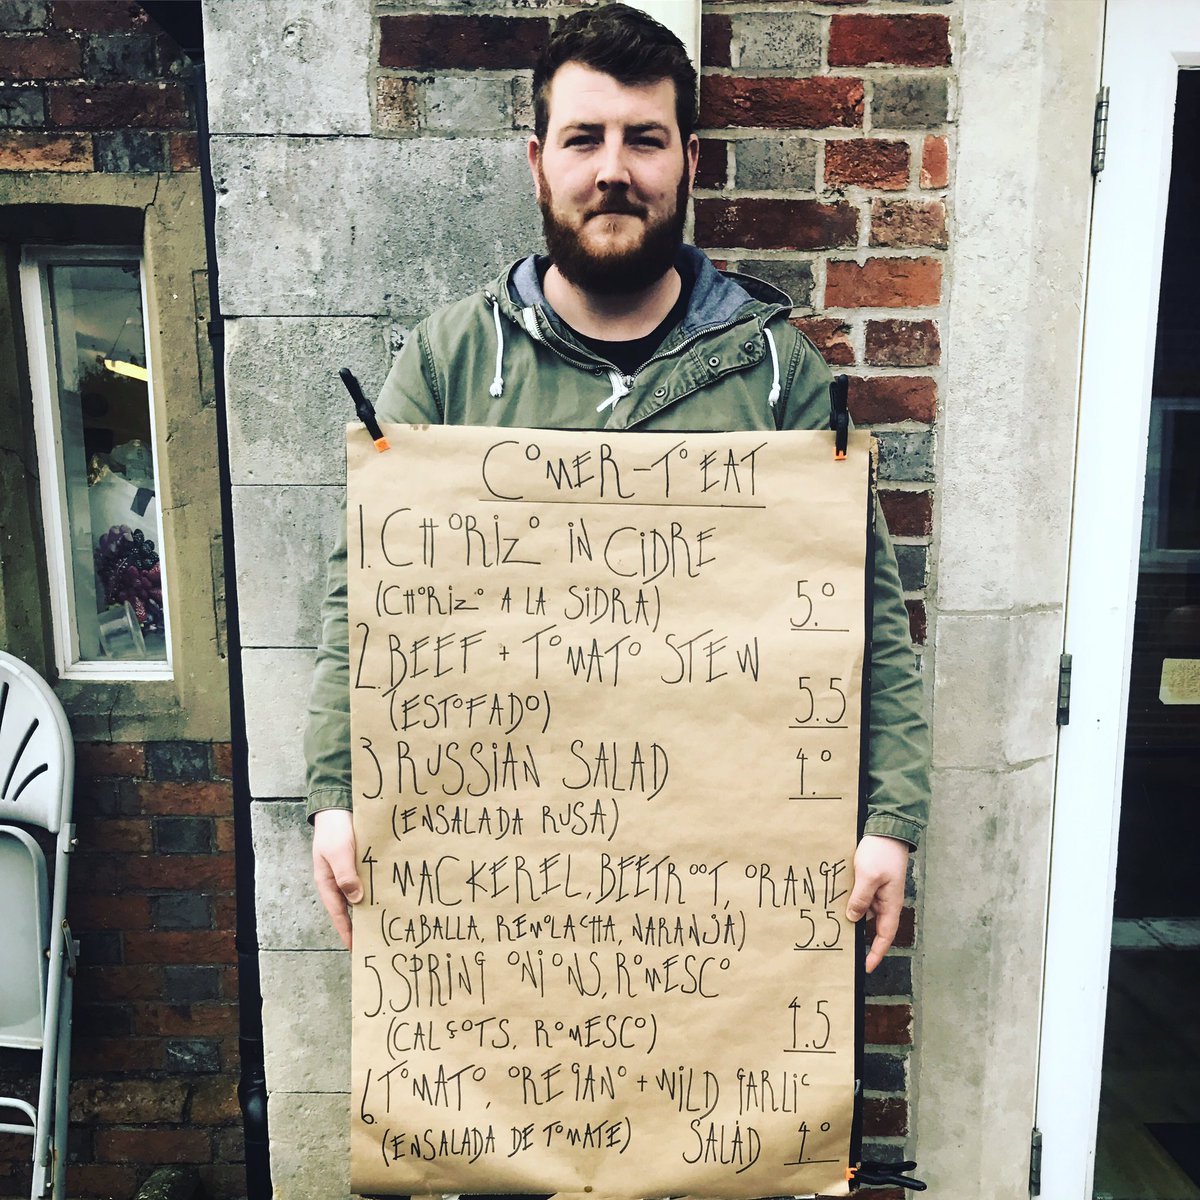 COMER-TO EAT
1. CHORIZO IN CIDRE
(CHORIZO A LA SIDRA) 5.0
2. BEEF + TOMATO STEW
(ESTOFADO) 5.5
3. RUSSIAN SALAD 4.0
(ENSALADA RUSA)
4. MACKEREL, BEETROOT, ORANGE
(CABALLA, REMOLACHA, NARANJA) 5.5
5. SPRING ONIONS, ROMESCO
(CALÇOTS, ROMESCO) 4.5
6. TOMATO, OREGANO + WILD GARLIC
(ENSALADA DE TOMATE) SALAD 4.0